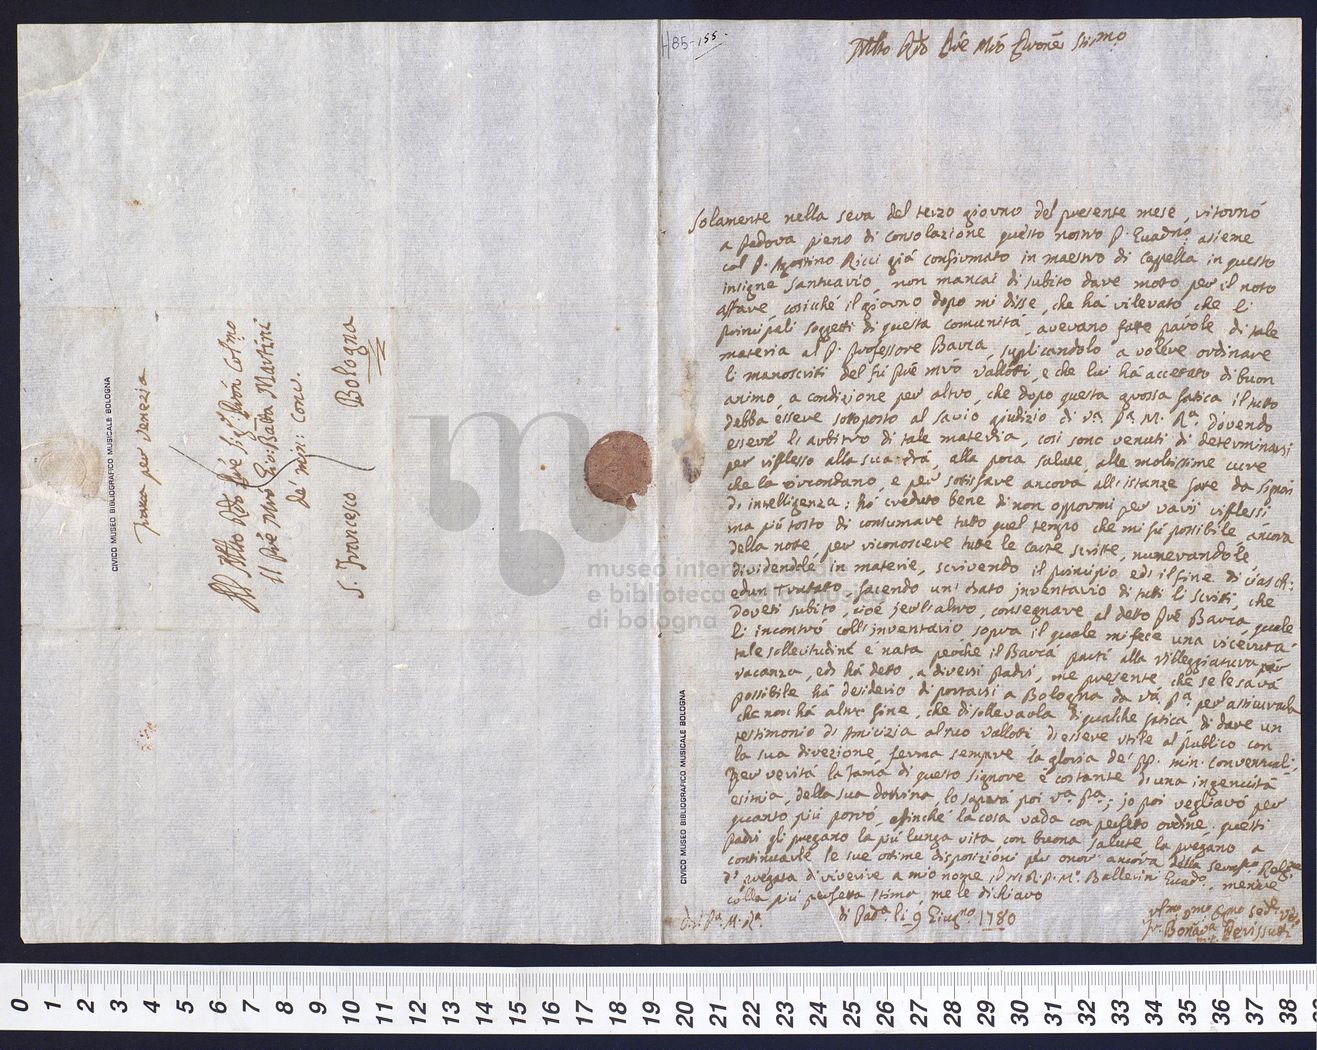 H85-155.
Mlto Rdo Pre Mio Prone Stimo
Solamente nella sera del terzo giorno del presente mese, ritornò
a Padova pieno di consolazione questo nostro P. Guadno: asieme
col P. Agostino Ricci già confirmato in maestro di Cappella in questo
insigne Santuario, non mancai di subito dare moto per il noto
affare, cosicché il giorno dopo mi disse, che há rilevato che li
principali soggetti di questa comunità, avevano fatte parole di tale
materia al P. Professore Barca, suplicandolo a volére ordinare
li manoscriti del fú Pre mro Vallotti, e che lui há accetato di buon
animo, a condizione per altro, che dopo questa grossa fatica il tutto
debba éssere sottoposto al savio giudizio di va. Pa. M. Ra. dovendo
esseré li arbitro di tale materia, cosi sono venuti di determinarsi
per riflesso alla sua età, alla poca salute, alle moltissime cure
che la circondano, e pér sotisfare ancora all'istanze fate da signori
di intelligenza; hó creduto bene di non oppormi per varii riflessi
ma piú tosto di consumare tutto quel tempo che mi fú possibile áncora
della note, per riconoscere tutte le carte scritte, numerandole
dividendolé in materie, scrivendo il principio ed il fine di
facendo un' inventario di tuti li scriti, che
doveti subito, cioé jerl'altro, consegnare al deto Pré Barca quale
li incontró coll'inventario sopra il quale mi fece una ricevuta
tale sollecitudine é nata perché il Barca parti alla villeggiatura per
vacanza, ed há deto, a diversi Padri, me presente, che se le sará
possibile há desiderio di portarsi a Bologna da vá Pa. per assicurarla
che non há altro fine, che di sollevarla di qualche fatica, di dare un
testimonio di Amicizia al suo Vallotti di essere utile al publico con
la sua direzione, ferma sempre la gloria de' PP. min: conventuali,
Per veritá la fama di questo signore é costante di una ingenuitá
esimia, della sua dotrina, lo saprá poi va. Pa.; jo poi vegliaró per
quanto piú potró, afinché la cosa vada con perfetto ordine. questi
Padri gli pregano la piú lunga vita, con buona salute la prégano a
continuarlé le sue ottime disposizioni per onor ancóra della
pregata di riverire a mio nome il P. Mo. Ballerini Guado. mentre
colla piú perfetta stima, me le dichiaro
Di V. Pa. M. Ra.
di Pada. li 9 Giugno. 1780
Fr. Bonava Perissutti
Franca per Venezia
Al Mlto Rdo Pré Sigr Pron Colmo
Il Pré Mro Gio: Batta Martini
De' Min: Conv:
S. Francesco
Bologna
CIVICO MUSEO BIBLIOGRAFICO MUSICALE BOLOGNA
CIVICO MUSEO BIBLIOGRAFICO MUSICALE BOLOGNA
museo internazionale
e biblioteca della musica
di bologna
0 1 2 3 4 5 6 7 8 9 10 11 12 13 14 15 16 17 18 19 20 21 22 23 24 25 26 27 28 29 30 31 32 33 34 35 36 37 38